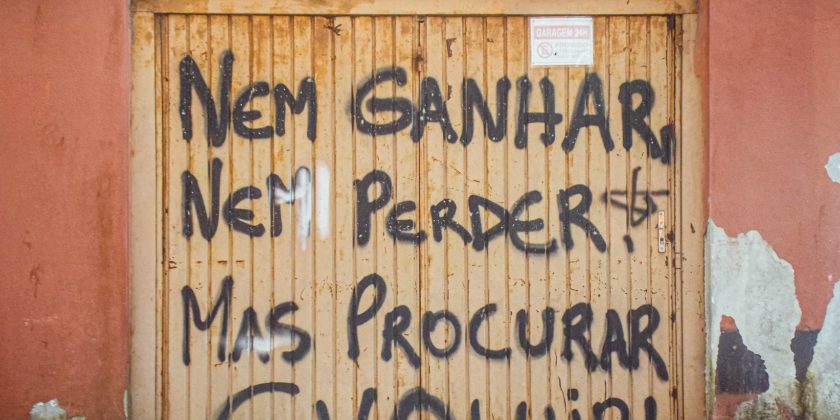 GARAGEM 24H
NEM GANHAR,
NEM PERDER
MAS PROCURAR